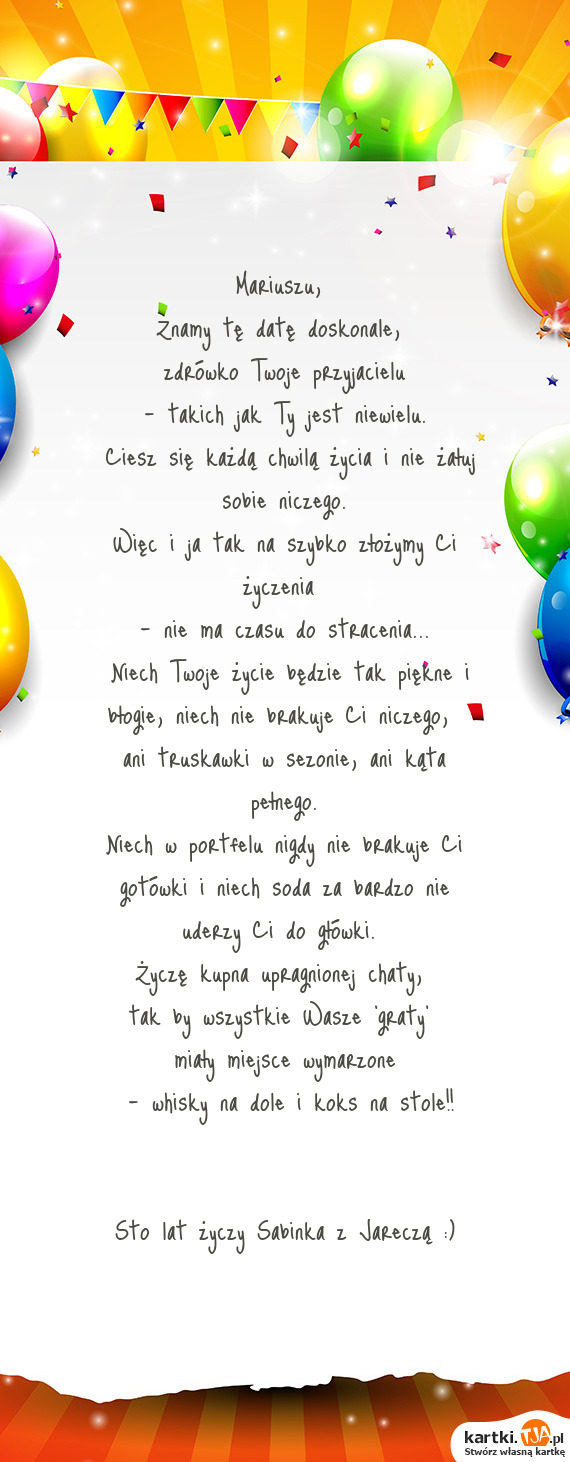 Mariuszu,
Znamy tę datę doskonale,
zdrówko Twoje przyjacielu
- takich jak Ty jest niewielu.
Ciesz się każdą chwilą życia i nie żałuj
sobie niczego.
Więc i ja tak na szybko złożymy Ci
życzenia
- nie ma czasu do stracenia...
Niech Twoje życie będzie tak piękne i
błogie, niech nie brakuje Ci niczego,
ani truskawki w sezonie, ani kąta
pełnego.
Niech w portfelu nigdy nie brakuje Ci
gotówki i niech soda za bardzo nie
uderzy Ci do główki.
Życzę kupna upragnionej chaty,
tak by wszystkie Wasze "graty"
miały miejsce wymarzone
- whisky na dole i koks na stole!!
Sto lat życzy Sabinka z Jareczą :)
kartki.TJA.pl
Stwórz własną kartkę